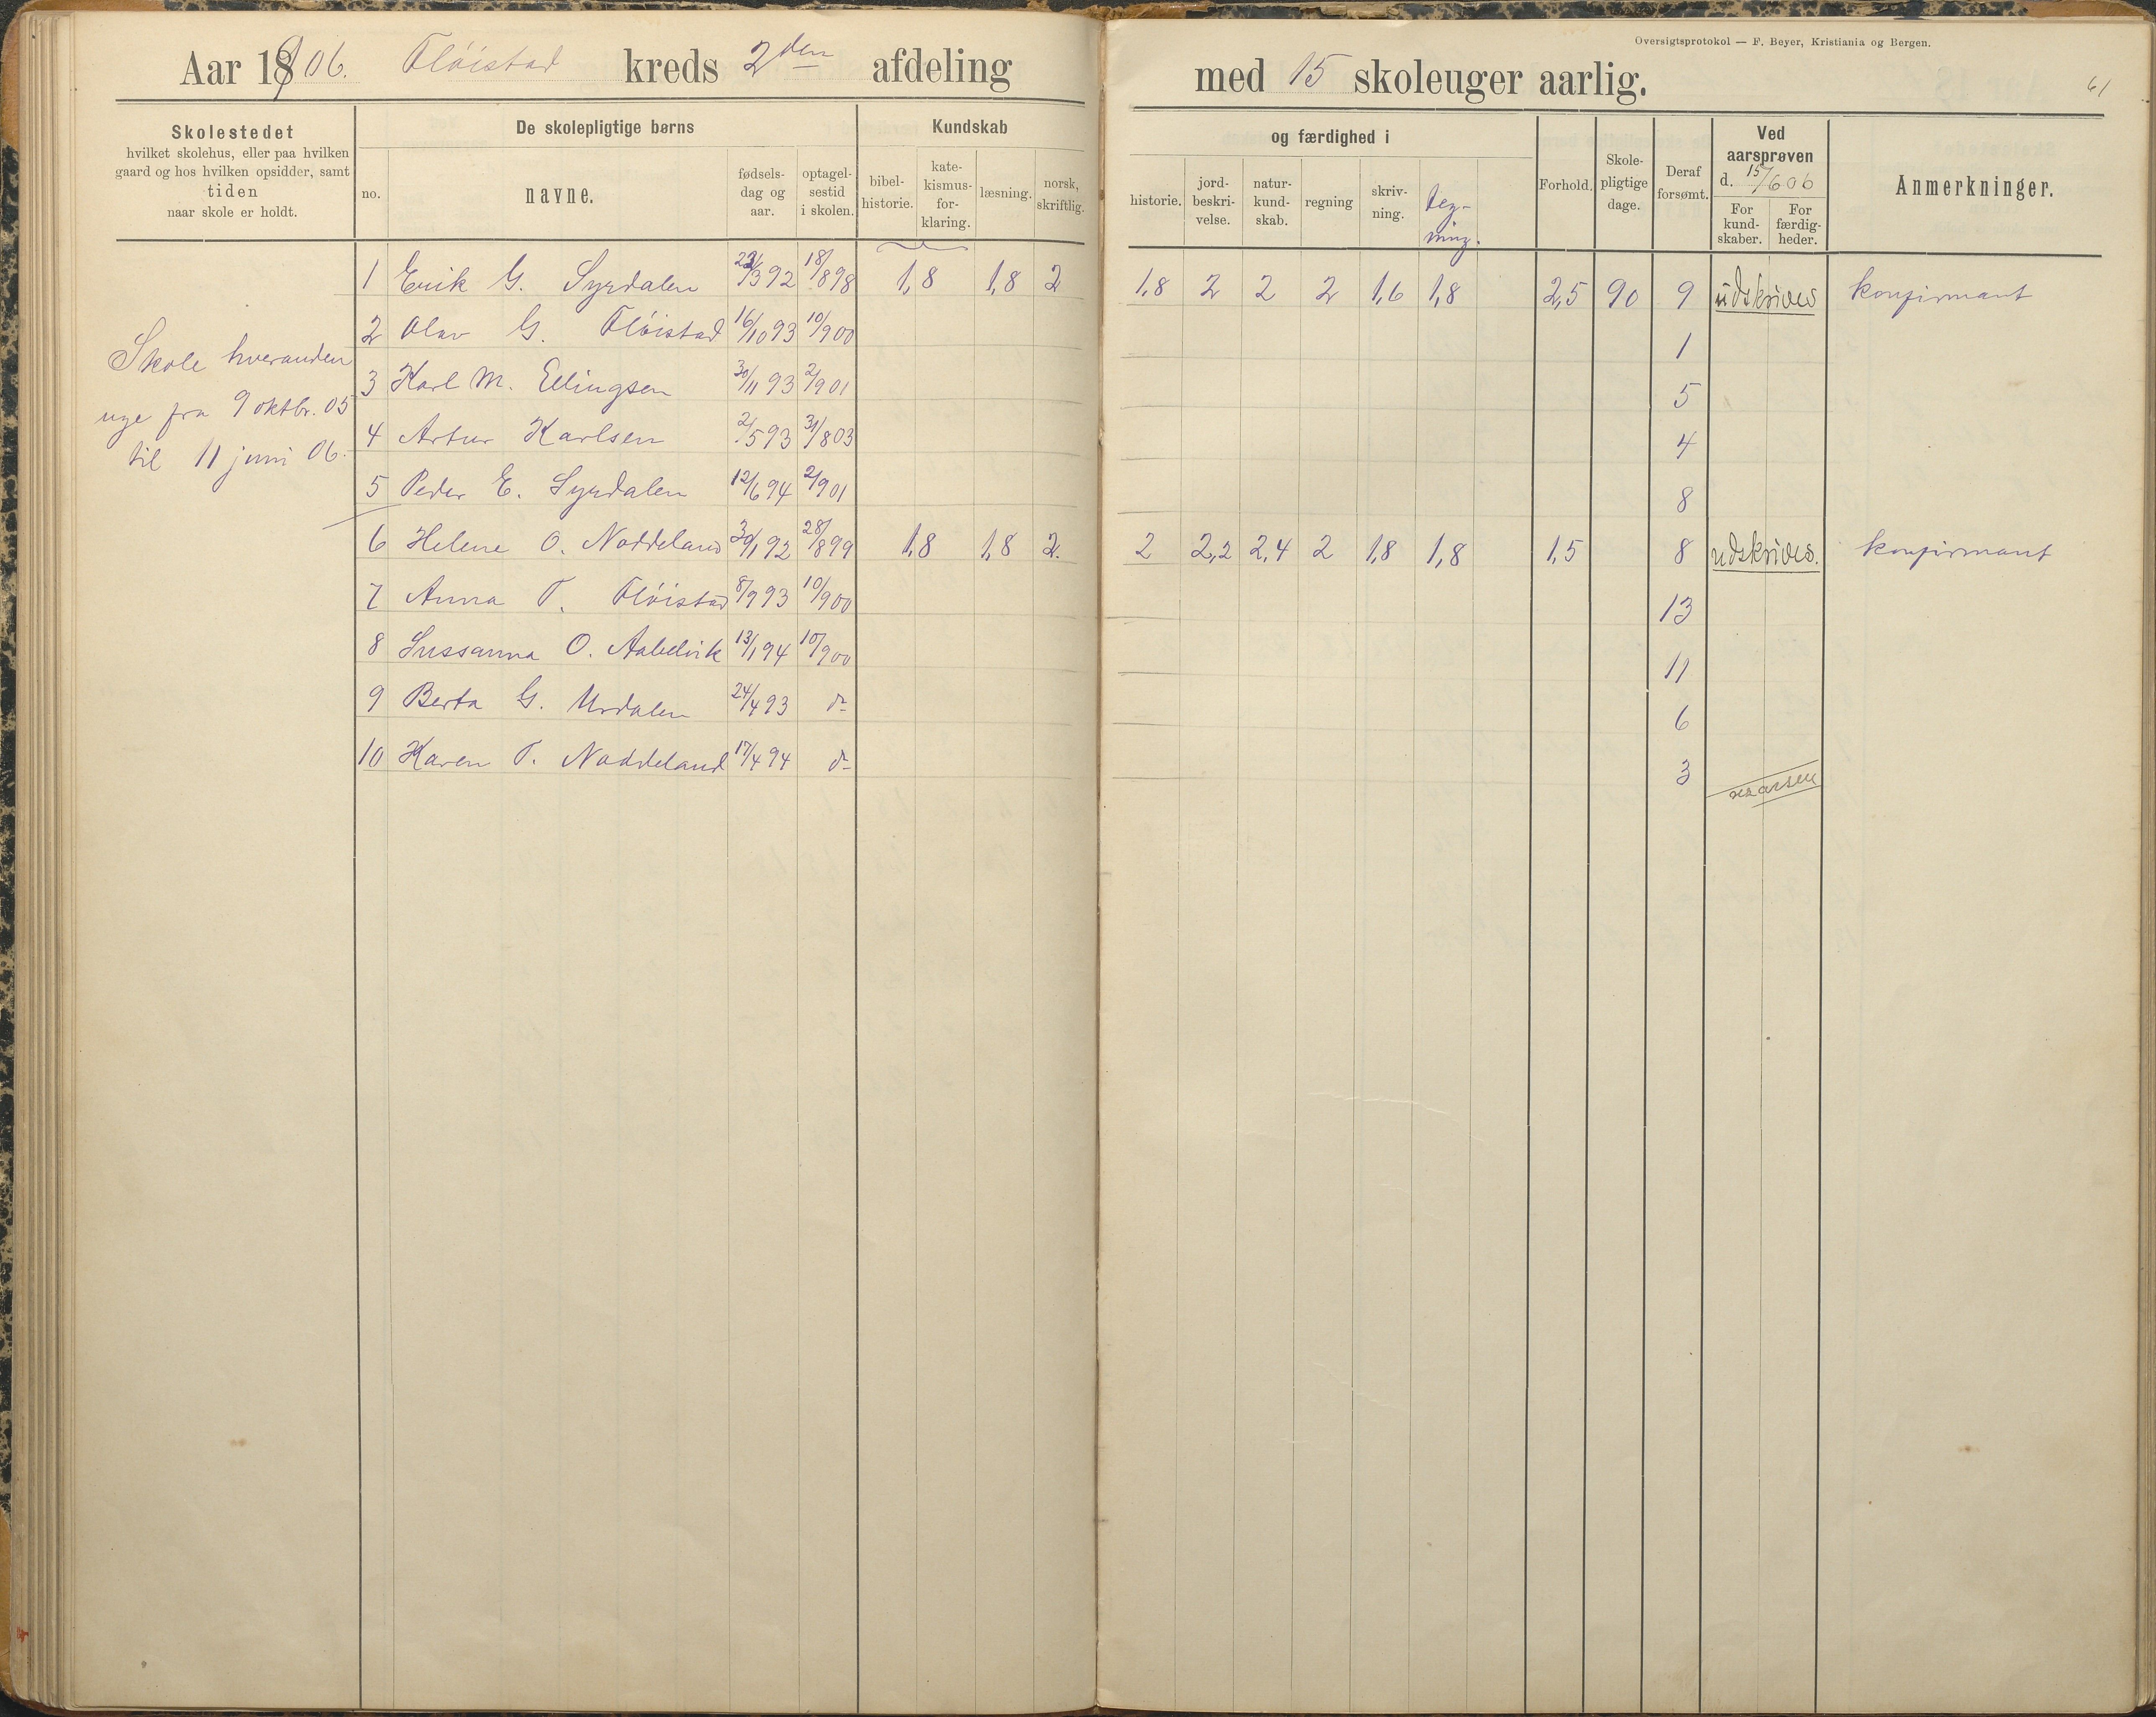 Oversigtsprotokol — F. Beyer, Kristiania og Bergen.
Aar 1906. Fløistad kreds 2den afdeling med 15 skoleuger aarlig.
61
Skolestedet
hvilket skolehus, eller paa hvilken
gaard og hos hvilken opsidder, samt
tiden
naar skole er holdt.
De skolepligtige børns
no.
navne.
fødsels-
dag og
aar.
optagel-
sestid
i skolen.
Kundskab
bibel-
historie.
kate-
kismus-
for-
klaring.
læsning.
norsk,
skriftlig.
og færdighed i
historie.
jord-
beskri-
velse.
natur-
kund-
skab.
regning
skriv-
ning.
teg-
ning.
Forhold.
Skole-
pligtige
dage.
Deraf
forsømt.
Ved
aarsprøven
d. 15/6 06
For
kund-
skaber.
For
færdig-
heder.
Anmerkninger.
Skole hveranden
uge fra 9 oktbr. 05
til 11 juni 06.
1 Erik G. Syrdalen /3 92 18/8 98 1,8 1,8 2 1,8 2 2 2 1,6 1,8 2,5 90 9 udskrives konfirmant
2 Olav G. Fløistad 16/10 93 10/9 00 1
3 Karl M. Ellingsen 30/11 93 2/9 01 5
4 Artur Karlsen 2/5 93 31/8 03 4
5 Peder E. Syrdalen 12/6 94 2/9 01 8
6 Helene O. Noddeland 30/1 92 28/8 99 1,8 1,8 2. 2 2,2 2,4 2 1,8 1,8 1,5 8 udskrives. konfirmant
7 Anna T. Fløistad 8/9 93 10/9 00 13
8 Sussanna O. Aabelvik 13/1 94 10/9 00 11
9 Berta G. Urdalen 24/4 93 do 6
10 Karen T. Noddeland 17/4 94 do 3